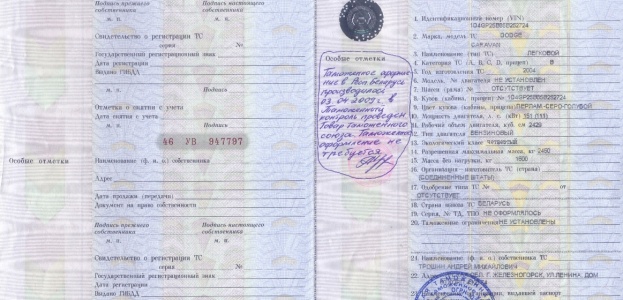 Подпись прежнего собственника
Подпись настоящего собственника
м. п.
м. п.
Свидетельство о регистрации ТС
серия №
Государственный регистрационный знак
Дата регистрации
Выдано ГИБДД
м. п.
Подпись
Отметка о снятии с учета
Дата снятия с учета
м. п.
Подпись
46 УВ 947797
Особые отметки
Наименование (ф. и. о.) собственника
Адрес
Дата продажи (передачи)
Документ на право собственности
Подпись прежнего собственника
Подпись настоящего собственника
м. п.
м. п.
Свидетельство о регистрации ТС
серия №
Государственный регистрационный знак
Дата регистрации
Выдано ГИБДД
Особые отметки
Таможенное оформление
в Респ Беларусь
производилось
03.04.2009г. в
контроль проведен
Товар Таможенного
союза. Таможенное
оформление не
требуется
1. Идентификационный номер (VIN)
1D4GP25B65B252724
2. Марка, модель ТС DODGE
CARAVAN
3. Наименование (тип ТС) ЛЕГКОВОЙ
4. Категория ТС (А, В, С, D, прицеп) B
5. Год изготовления ТС 2004
6. Модель, № двигателя НЕ УСТАНОВЛЕН
7. Шасси (рама) № ОТСУТСТВУЕТ
8. Кузов (кабина, прицеп) № 1D4GP25B65B252724
9. Цвет кузова (кабины, прицепа)
10. Мощность двигателя, л. с. (кВт) 151 (111)
11. Рабочий объем двигателя, куб. см 2429
12. Тип двигателя БЕНЗИНОВЫЙ
13. Экологический класс ЧЕТВЕРТЫЙ
14. Разрешенная максимальная масса, кг 2450
15. Масса без нагрузки, кг 1600
16. Организация - изготовитель ТС (страна)
(СОЕДИНЕННЫЕ ШТАТЫ)
17. Одобрение типа ТС № от
ОТСУТСТВУЕТ
18. Страна вывоза ТС БЕЛАРУСЬ
19. Серия, № ТД, ТПО НЕ ОФОРМЛЯЛОСЬ
20. Таможенные ограничения НЕ УСТАНОВЛЕНЫ
21. Наименование (ф. и. о.) собственника ТС
ТРОШИН АНДРЕЙ МИХАЙЛОВИЧ
22. Адрес ОБЛ. Г. ЖЕЛЕЗНОГОРСК, УЛ.ЛЕНИНА, ДОМ